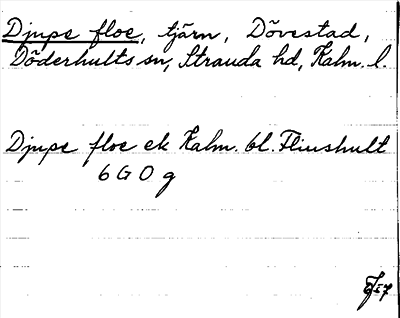 Djupe floe, tjärn, Dövestad,
Döderhults sn, Stranda hd, Kalm. l.
Djupe floe ek Kalm. bl. Fliushult
6 G 0 g
57